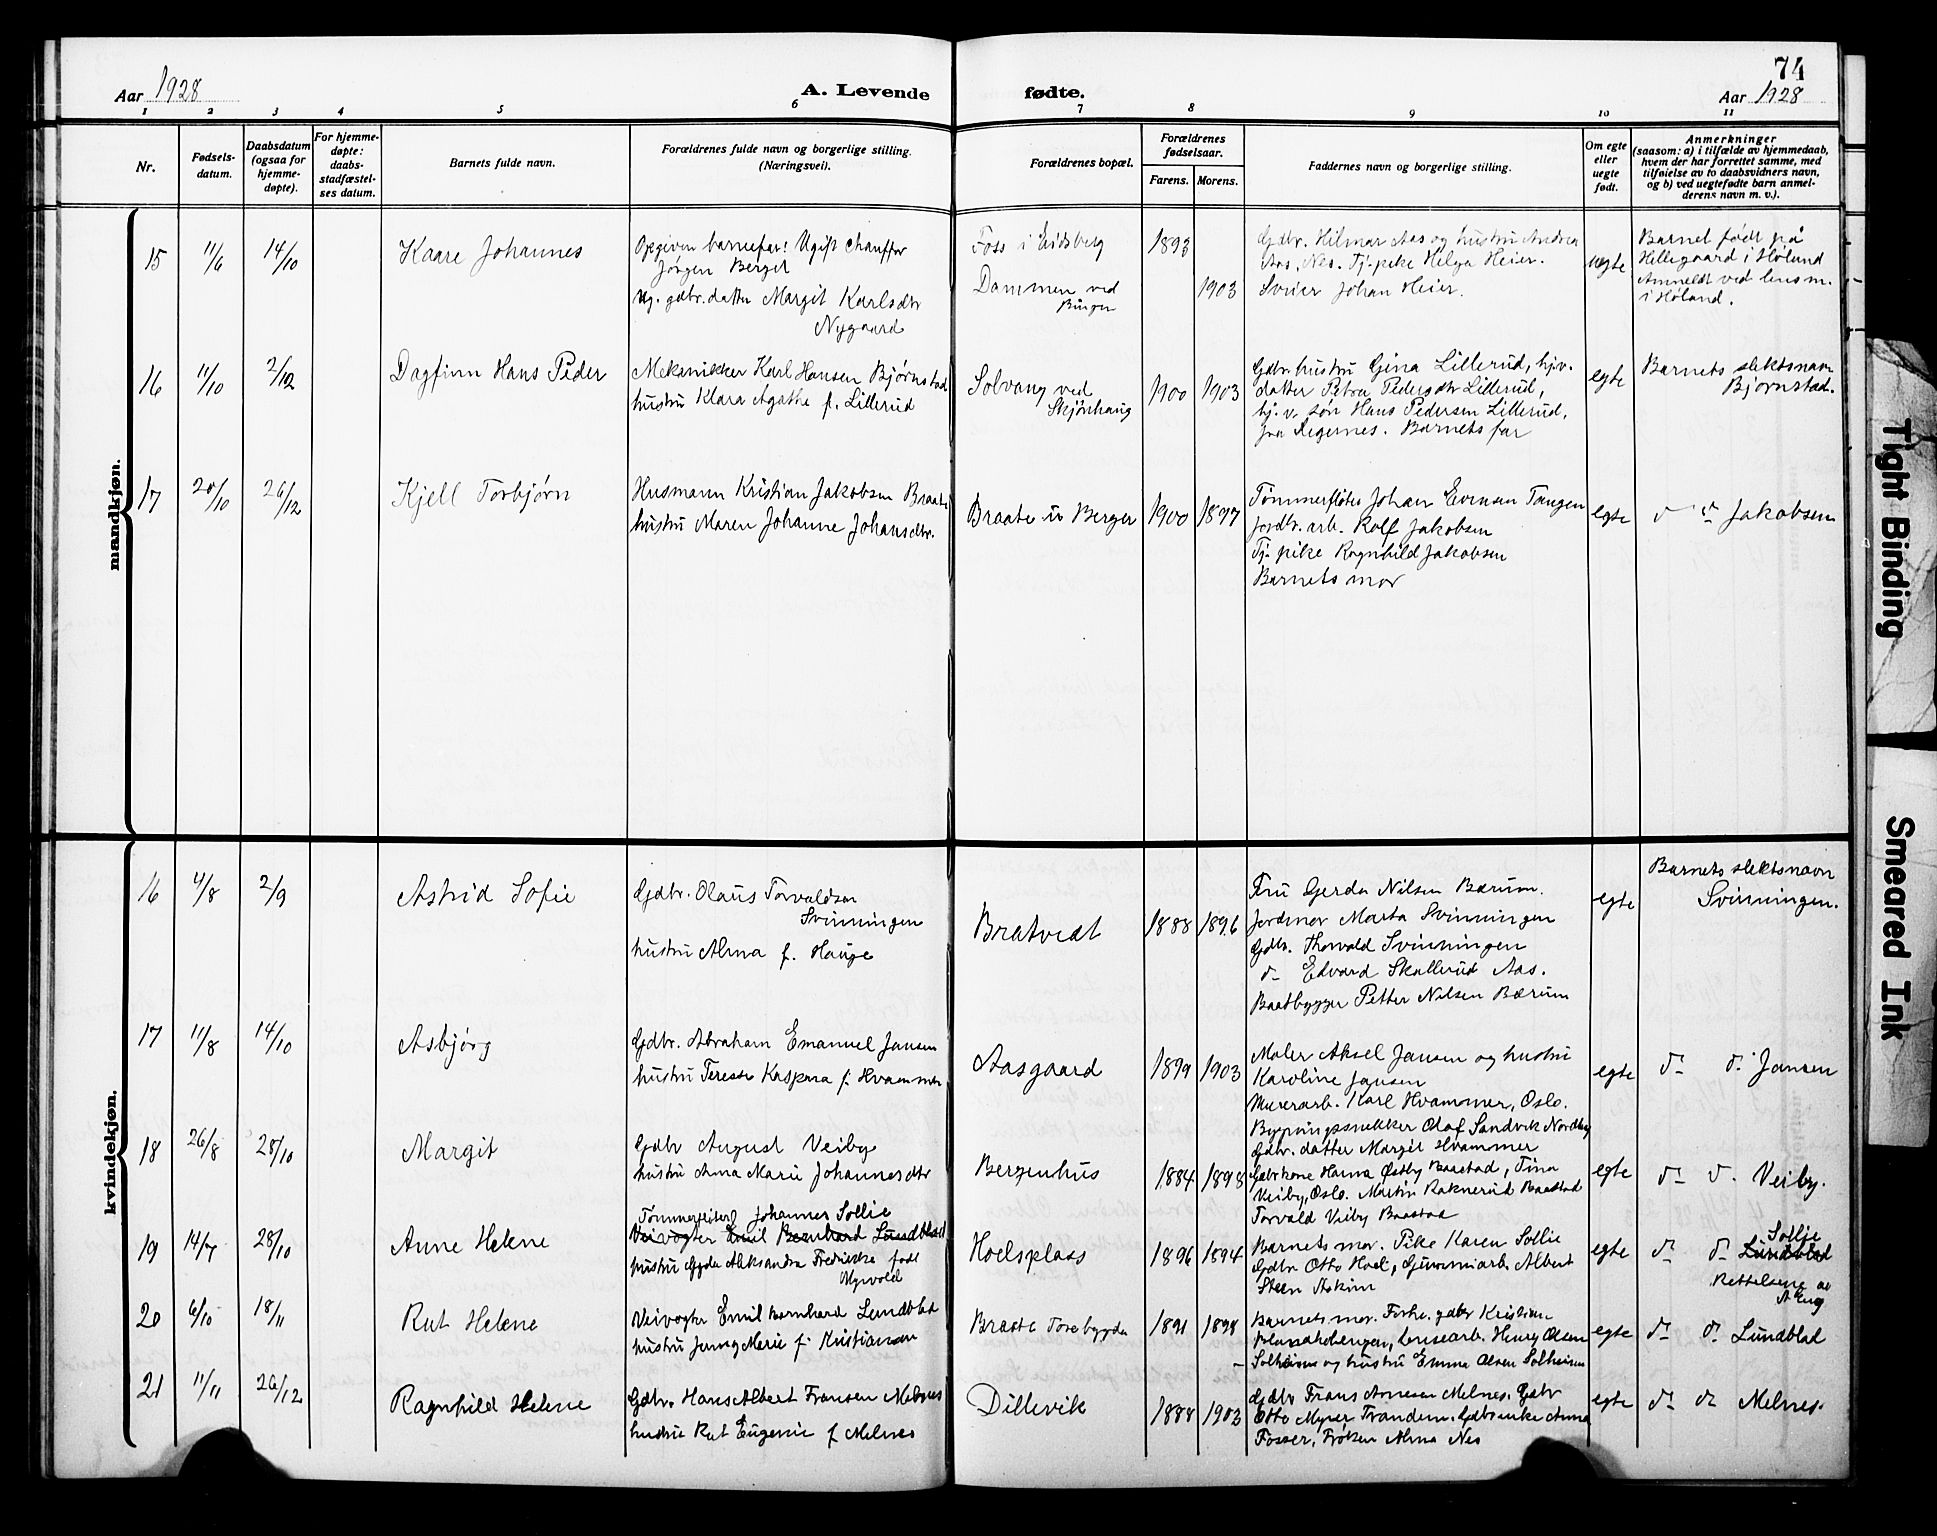 74
Aar 1928
A. Levende
fødte.
Aar 1928
1 2 3 4 5 6 7 8 9 10 11
Nr.
Fødsels-
datum.
Daabsdatum
(ogsaa for
hjemme-
døpte).
For hjemme-
døpte:
daabs-
stadfæstel-
ses datum.
Barnets fulde navn.
Forældrenes fulde navn og borgerlige stilling.
(Næringsvei).
Forældrenes bopæl.
Forældrenes
fødselsaar.
Farens. Morens.
Faddernes navn og borgerlige stilling.
Om egte
eller
uegte
født.
Anmerkninger
(saasom: a) i tilfælde av hjemmedaab,
hvem der har forrettet samme, med
tilføielse av to daabsvidners navn,
og b) ved uegtefødte barn anmel-
derens navn m. v.).
mandkjøn.
15
11/6
14/10
Kaare Johannes
Opgiven barnefar: Ugift chauffør
Jørgen Berget
Ug. gdbr. datter Margit Karlsdtr
Nygaard
Foss i Eidsberg
Dammen ved
Burger
1893
1903
Gdbr. Hilmar Aas og hustru Andrea
Aas, Nes. Tj. pike Helga Heier.
Johan Heier.
uegte
Barnet født på
Hellegaard i Høland
Anmeldt ved lensm.
i Høland.
16
11/10
2/12
Dagfinn Hans Peder
Mekanikker Karl Hansen Bjørnstad
hustru Klara Agathe f. Lillerud
Solvang ved
Skjønhaug
1900
1903
Gdbr. hustru Gina Lillerud, hjv.
datter Petra Pedersdtr Lillerud,
hj. v. søn Hans Pedersen Lillerud,
fra Degernes. Barnets far
egte
Barnets slektsnavn
Bjørnstad.
17
20/10
26/12
Kjell Torbjørn
Husmann Kristian Jakobsen Braate
hustru Maren Johanne Johansdtr.
Braate u Berger
1900
1897
Tømmerfløter Johan Evensen Tangen
jordbr. arb. Rolf Jakobsen
Tj. pike Ragnhild Jakobsen
Barnets mor
egte
d- d- Jakobsen
kvindekjøn.
16
4/8
2/9
Astrid Sofie
Gdbr. Olaus Torvaldsen
Svinningen
hustru Alma f. Hauge
Bratvedt
1888
1896
Fru Gerda Nilsen Bærum.
Jordmor Marta Svinningen
Gdbr. Thorvald Svinningen
d- Edvard Skallerud Aas.
Baatbygger Petter Nilsen Bærum
egte
Barnets slektsnavn
Svinningen.
17
11/8
14/10
Asbjørg
Gdbr. Abraham Emanuel Jansen
hustru Terese Kaspara f. Hvammer
Aasgaard
1899
1903
Maler Aksel Jansen og hustru
Karoline Jansen
Murerarb. Karl Hvammer, Oslo.
Bygningssnekker Olaf Sandvik Nordby
Gdbr. datter Margit Hvammer
egte
d- d- Jansen
18
26/8
28/10
Margit
Gdbr August Veiby
hustru Anna Marie Johannesdtr
Bergenhus
1884
1898
Gdbrkone Hanna Østby Baastad, Tina
Veiby, Oslo. Martin Raknerud Baastad
Torvald Veiby Baastad
egte
d- d- Veiby.
19
14/7
28/10
Anne Helene
Johannes Sollie
Veivogter Emil Bernhard Lundblad
hustru Gyda Aleksandra Fredrikke født
Myrvold
Hoelsplass
1896
1894
Barnets mor. Pike Karen Sollie
Gdbr Otto Hoel, Gummiarb. Albert
Steen Askim
egte
Sollie
d- d- Lundblad
Rettelsene av
A Eng
20
6/10
18/11
Rut Helene
Veivogter Emil Bernhard Lundblad
hustru Jenny Marie f. Kristiansen
Braate Torebygda
1891
1898
Barnets mor. Forh. gdbr Kristian
Henry Olsen
Solheim og hustru Emma Olsen Solheim
egte
d- d- Lundblad
21
11/11
26/12
Ragnhild Helene
Gdbr. Hans Albert Fransen Melnes
hustru Rut Eugenie f Melnes
Dillevik
1888
1902
Gdbr Frans Arnesen Melnes. Gdbr
Otto Myrer Trandem. Gdbr.enke Anna
Fosser, Frøken Alma Nes
egte
d- d- Melnes.
Tight Binding
Smeared Ink